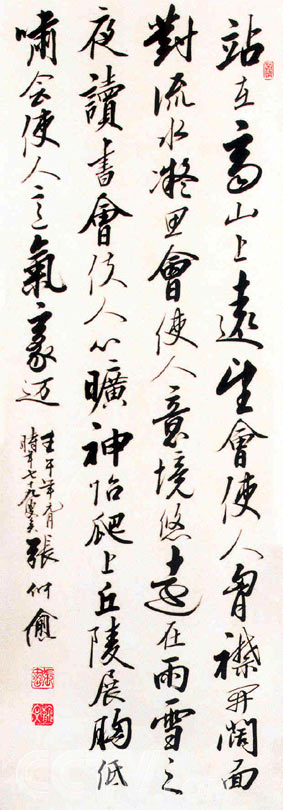 站在高山上遠望會使人胸襟开闊面
對流水凝思會使人意境悠遠在雨雪之
夜讀書會使人心曠神怡爬上丘陵展胸低
嘯会使人意氣豪迈
壬午年 張
時年七十九
CCTV